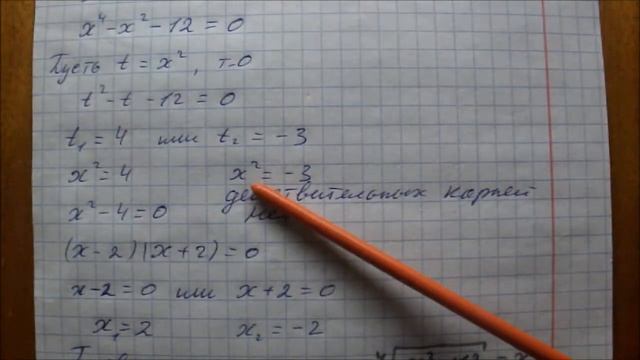 x⁴-x²-12=0
Пусть t=x², т-о
t²-t-12=0
t₁=4 или t₂=-3
x²=4 x²=-3
действительных корней
x²-4=0 нет
(x-2)(x+2)=0
x-2=0 или x+2=0
x₁=2 x₂=-2